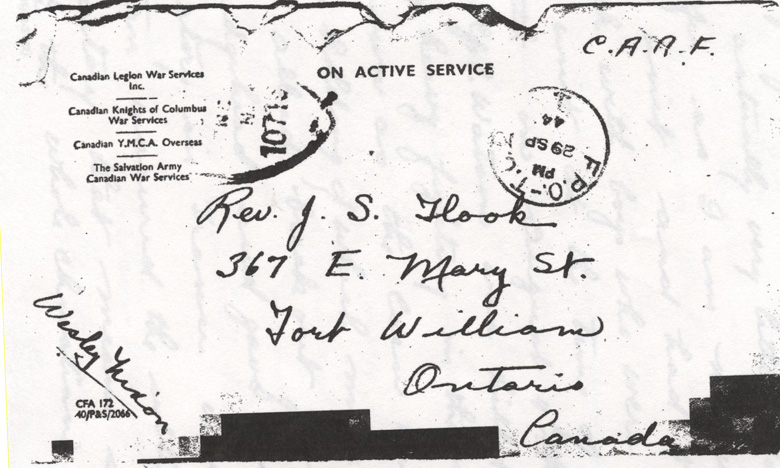 C.A.A.F.
ON ACTIVE SERVICE
Canadian Legion War Services
Inc.
Canadian Knights of Columbus
War Services
Canadian Y.M.C.A. Overseas
The Salvation Army
Canadian War Services
10718
F.P.O.
PM
29 SP
44
Rev. J. S. Flook
367 E. Mary St.
Fort William
Ontario
Canada
Wesley Nixon
CFA 172
40/P&S/2066